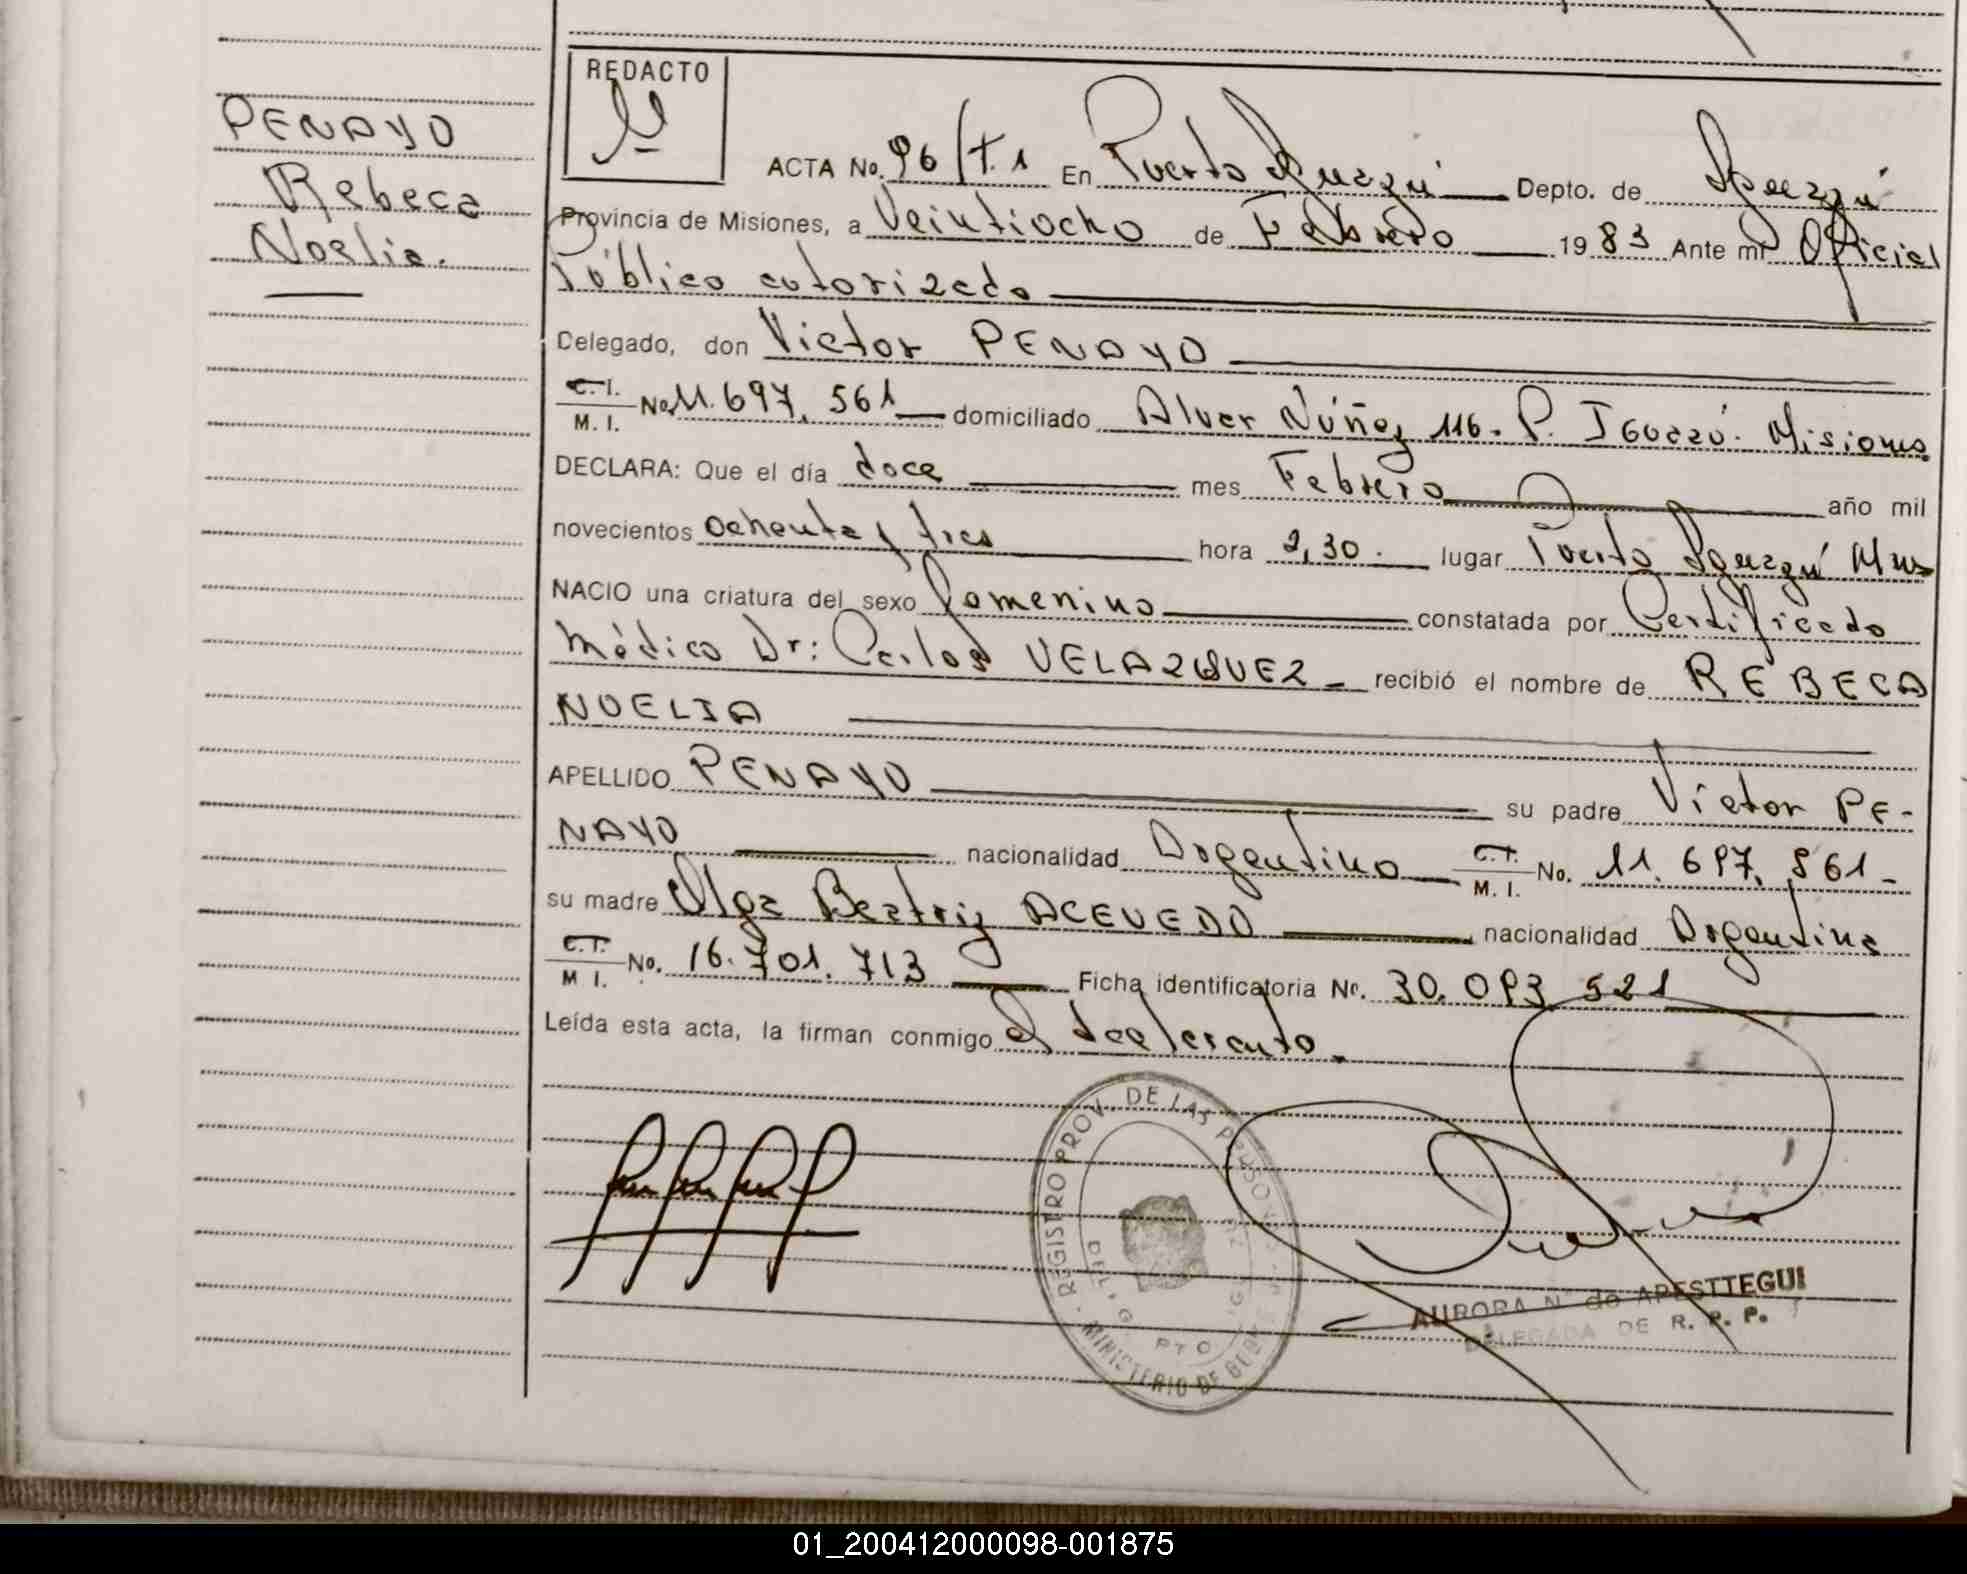 PENAYO
Rebeca
Noelia.
REDACTO
ACTA No. 96/T.1 En Puerto Iguazú Depto. de Iguazú
Provincia de Misiones, a Veintiocho de Febrero 1983 Ante mi Oficial
Público autorizado
Delegado, don Victor PENAYO
C.I.
M. I. No. 11.697.561 domiciliado Alvar Núñez 116. P. Iguazú. Misiones
DECLARA: Que el día doce mes Febrero año mil
novecientos ochenta y tres hora 2,30. lugar Puerto Iguazú Mnes
NACIO una criatura del sexo femenino constatada por Certificado
Médico Dr: Carlos VELAZQUEZ recibió el nombre de REBECA
NOELIA
APELLIDO PENAYO su padre Víctor PE-
NAYO nacionalidad Argentino C.I.
M. I. No. 11.697.561-
su madre Olga Beatriz ACEVEDO nacionalidad Argentina
C.I.
M I. No. 16.701.713 Ficha identificatoria Nº. 30.093 521
Leída esta acta, la firman conmigo el declarante.
REGISTRO PROV. DE LAS PERSONAS
MINISTERIO DE GOB
AURORA N. de APESTTEGUI
DELEGADA DE R. P. P.
01_200412000098-001875